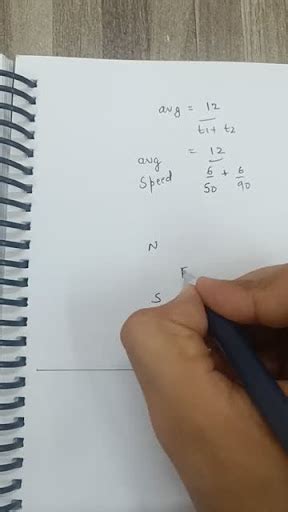 avg = 12
t1 + t2
avg = 12
Speed 6 + 6
50 90
N
E
S